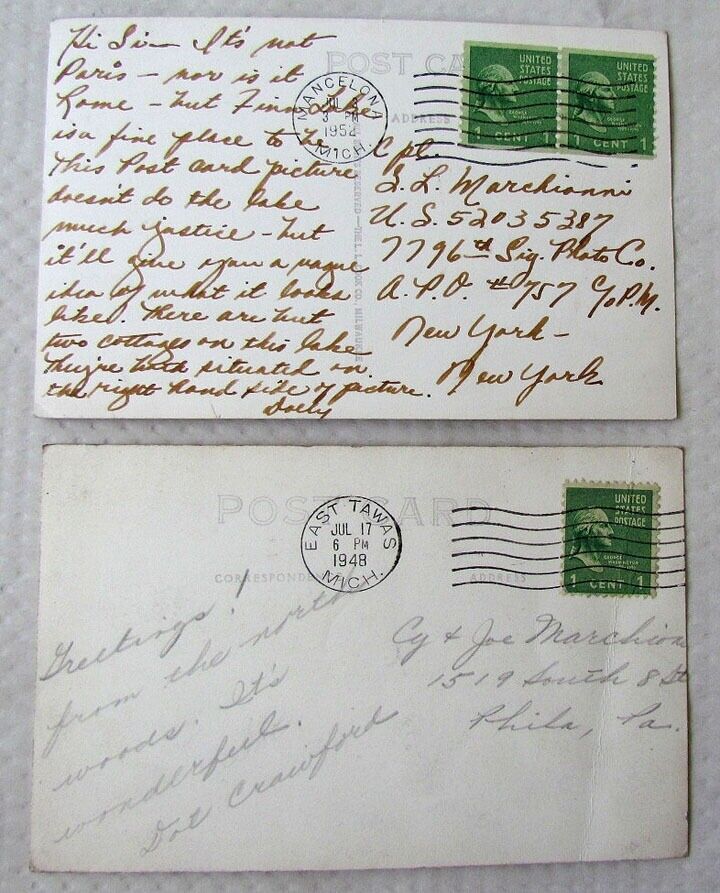 POST CA
Hi Si— It's not
Paris — nor is it
Rome — but Finn Lake
is a fine place to be
This Post card picture
doesn't do the lake
much justice — but
it'll give you a vague
idea of what it looks
like. There are but
two cottages on this lake
They're both situated on
the right hand side of picture.
Dolly
MANCELONA
JUL
3 PM
1952
MICH.
ADDRESS
UNITED
STATES
POSTAGE
1 CENT 1
UNITED
STATES
POSTAGE
1 CENT 1
Cpl.
S. L. Marchionni
U.S. 52035387
7796th Sig. Photo Co.
A.P.O. #757 C/o P.M.
New York —
New York
POST CARD
EAST TAWAS
JUL 17
6 PM
1948
MICH.
UNITED
STATES
POSTAGE
GEORGE
WASHINGTON
1 CENT 1
CORRESPONDENCE
ADDRESS
Greetings!
from the north
woods. It's
wonderful.
Dot Crawford
Cy & Joe Marchion
1519 South 8 St
Phila, Pa.